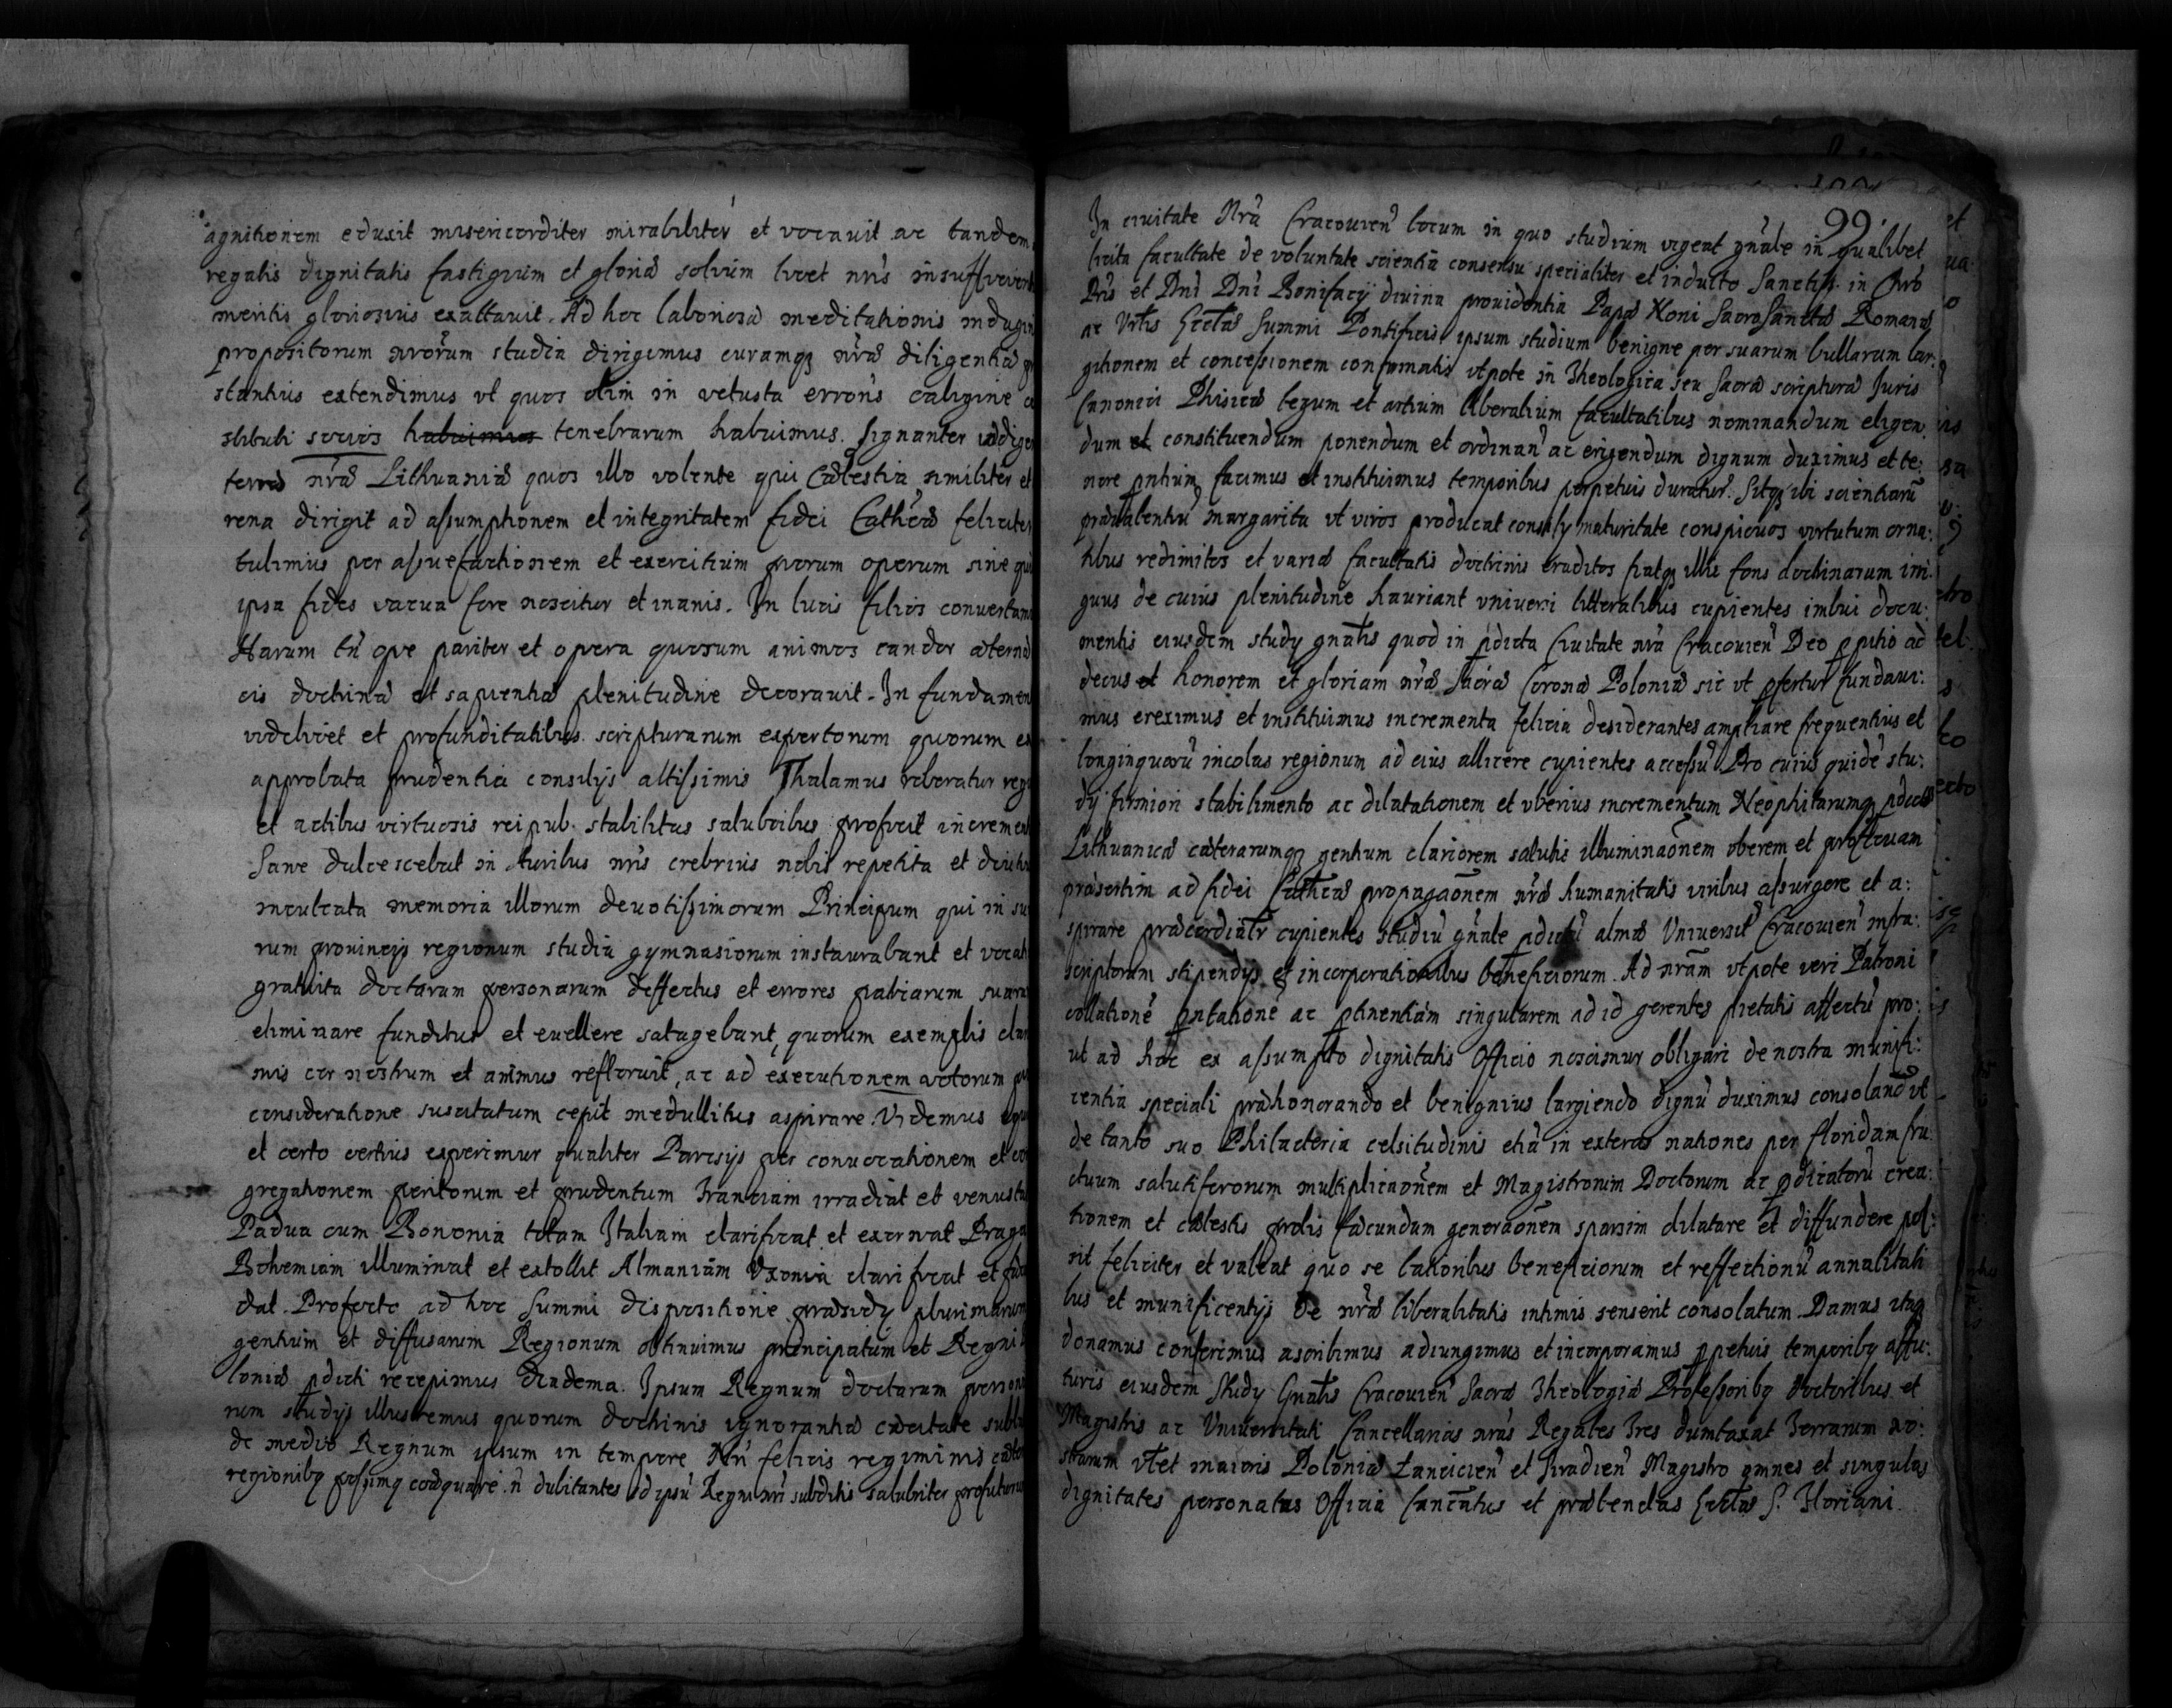 agnitionem eduxit misericorditer mirabiliter et vocauit ac tandem
regalis dignitatis fastigium et gloriæ solium licet nr̃is insufficient
meritis gloriosius exaltauit. Ad hoc laboriosæ meditationis indagin
propositorum nrõrum studia dirigimus curamqꝫ nr̃æ diligentiæ
stantius extendimus vt quos olim in vetusta erroris caligine
stibuli socios habuimus tenebrarum habuimus. Signanter indige
terræ nr̃æ Lithuaniæ quos illo volente qui Cælestia similiter et
rena dirigit ad assumptionem et integritatem fidei Cathcæ feliciter
tulimus per assuefactionem et exercitium piorum operum sine qui
ipsa fides vacua fore noscitur et inanis. In lucis filios conuertam
Harum tñ ope pariter et opera quorum animos candor æternæ
cis doctrinæ et sapientiæ plenitudine decorauit. In fundamen
videlicet et profunditatibus scripturarum expertorum quorum ex
approbata prudentia consilijs altissimis Thalamus roboratur regi
et actibus virtuosis reipub. stabilitus salubribus proficit incremen
Sane dulcescebat in Auribus nr̃is crebrius nobis repetita et diuti
inculcata memoria illorum deuotissimorum Principum qui in su
rum prouincijs regionum studia gymnasiorum instaurabant et vocat
gratuita doctarum personarum deffectus et errores patriarum suaru
eliminare funditus et euellere satagebant, quorum exemplis clar
mis cor nostrum et animus refloruit, ac ad executionem votorum
consideratione suscitatum cepit medullitus aspirare. Videmus equi
et certo certius experimur qualiter Parisijs per conuocationem et con
gregationem peritorum et prudentum Franciam irradiat et venustat
Padua cum Bononia totam Italiam clarificat et exornat Praga
Bohemiam illuminat et extollit Almaniam Vxonia clarificat et fæcun
dat. Profecto ad hoc Summi dispositione præsidy plurimarum
gentium et diffusarum Regionum obtinuimus principatum et Regni
loniæ pdicti recepimus diadema. Ipsum Regnum doctarum persona
rum studijs illustremus quorum doctrinis ignorantiæ cæcitate subla
de medio Regnum ipsum in tempore Nr̃i felicis regiminis cæter
regionibꝫ possimꝫ coæquare. ñ dubitantes id ipsũ Regni nr̃i subditis salubriter profuturum
99.
In ciuitate Nr̃a Cracouieñ locum in quo studium vigeat gñale in qualibet
licita facultate de voluntate scientia consensu specialiter et indulto Sanctiss. in Chrõ
Pr̃is et Dñi Dñi Bonifacij diuina prouidentia Papæ Noni SacroSanctæ Romanæ
ac Vr̃lis Eccl̃æ Summi Pontificis ipsum studium benigne per suarum bullarum lar:
gitionem et concessionem confirmatis vtpote in Theologica seu Sacræ scripturæ Juris
Canonici Phisicæ legum et artium liberalium facultatibus nominandum eligen:
dum et constituendum ponendum et ordinañ ac erigendum dignum duximus et te:
nore pñtium facimus et instituimus temporibus perpetuis duratur̃. Sitqꝫ ibi scientiarũ
præualentiũ margarita vt viros producat consily maturitate conspicuos virtutum orna:
tibus redimitos et variæ facultatis doctrinis eruditos fiatqꝫ illic fons doctrinarum irri
guus de cuius plenitudine hauriant vniuersi litteralibus cupientes imbui docu:
mentis eiusdem study gnãlis quod in pdicta Ciuitate nr̃a Cracouieñ Deo ppitio ad
decus et honorem et gloriam nr̃æ Sacræ Coronæ Poloniæ sic vt pfertur fundaui:
mus ereximus et instituimus incrementa felicia desiderantes ampliare frequentius et
longinquorũ incolas regionum ad eius allicere cupientes accessũ. Pro cuius quidẽ stu:
dy firmiori stabilimento ac dilatationem et vberius incrementum Neophitarumqꝫ pdictæ
Lithuanicæ cæterarumqꝫ gentium clariorem salutis illuminaõnem vberem et profluam
præsertim ad fidei Cath̃cæ propagaõnem nr̃æ humanitatis viribus assurgere et a:
spirare præcordialr̃ cupientes studiũ gñale pdictũ almæ Vniuersit̃ Cracouieñ infra:
scriptorum stipendijs et incorporationibus beneficiorum. Ad nrãm vtpote veri Patroni
collationẽ pñtationẽ ac ptinentiam singularem ad id gerentes pietatis affectũ pro:
ut ad hoc ex assumpto dignitatis Officio noscimur obligari de nostra munifi:
centia speciali præhonorando et benignius largiendo dignũ duximus consolañd vt
de tanto suo Philacteria celsitudinis etiã in exteras nationes per floridam fru
ctuum salutiferorum multiplicaõnem et Magistrorum Doctorum ac pdicatorũ crea:
tionem et cælestis prolis fæcundam generaõnem sparsim dilatare et diffundere pos:
sit feliciter et valeat quo se latioribus beneficiorum et reffectionũ annalitati
bus et munificentijs de nr̃æ liberalitatis intimis senserit consolatum. Damus itaqꝫ
donamus conferimus ascribimus adiungimus et incorporamus ppetuis temporibꝫ affu:
turis eiusdem Study Gnãlis Cracouieñ Sacræ Theologiæ Professoribꝫ doctoribus et
Magistris ac Vniuersitati Cancellarias nr̃as Regales Tres dumtaxat Terrarum no:
strarum vtet maioris Poloniæ Łancicieñ et Siradieñ Magistro omnes et singulas
dignitates personatus Officia Canc̃atus et præbendas Eccl̃æ S. Floriani.